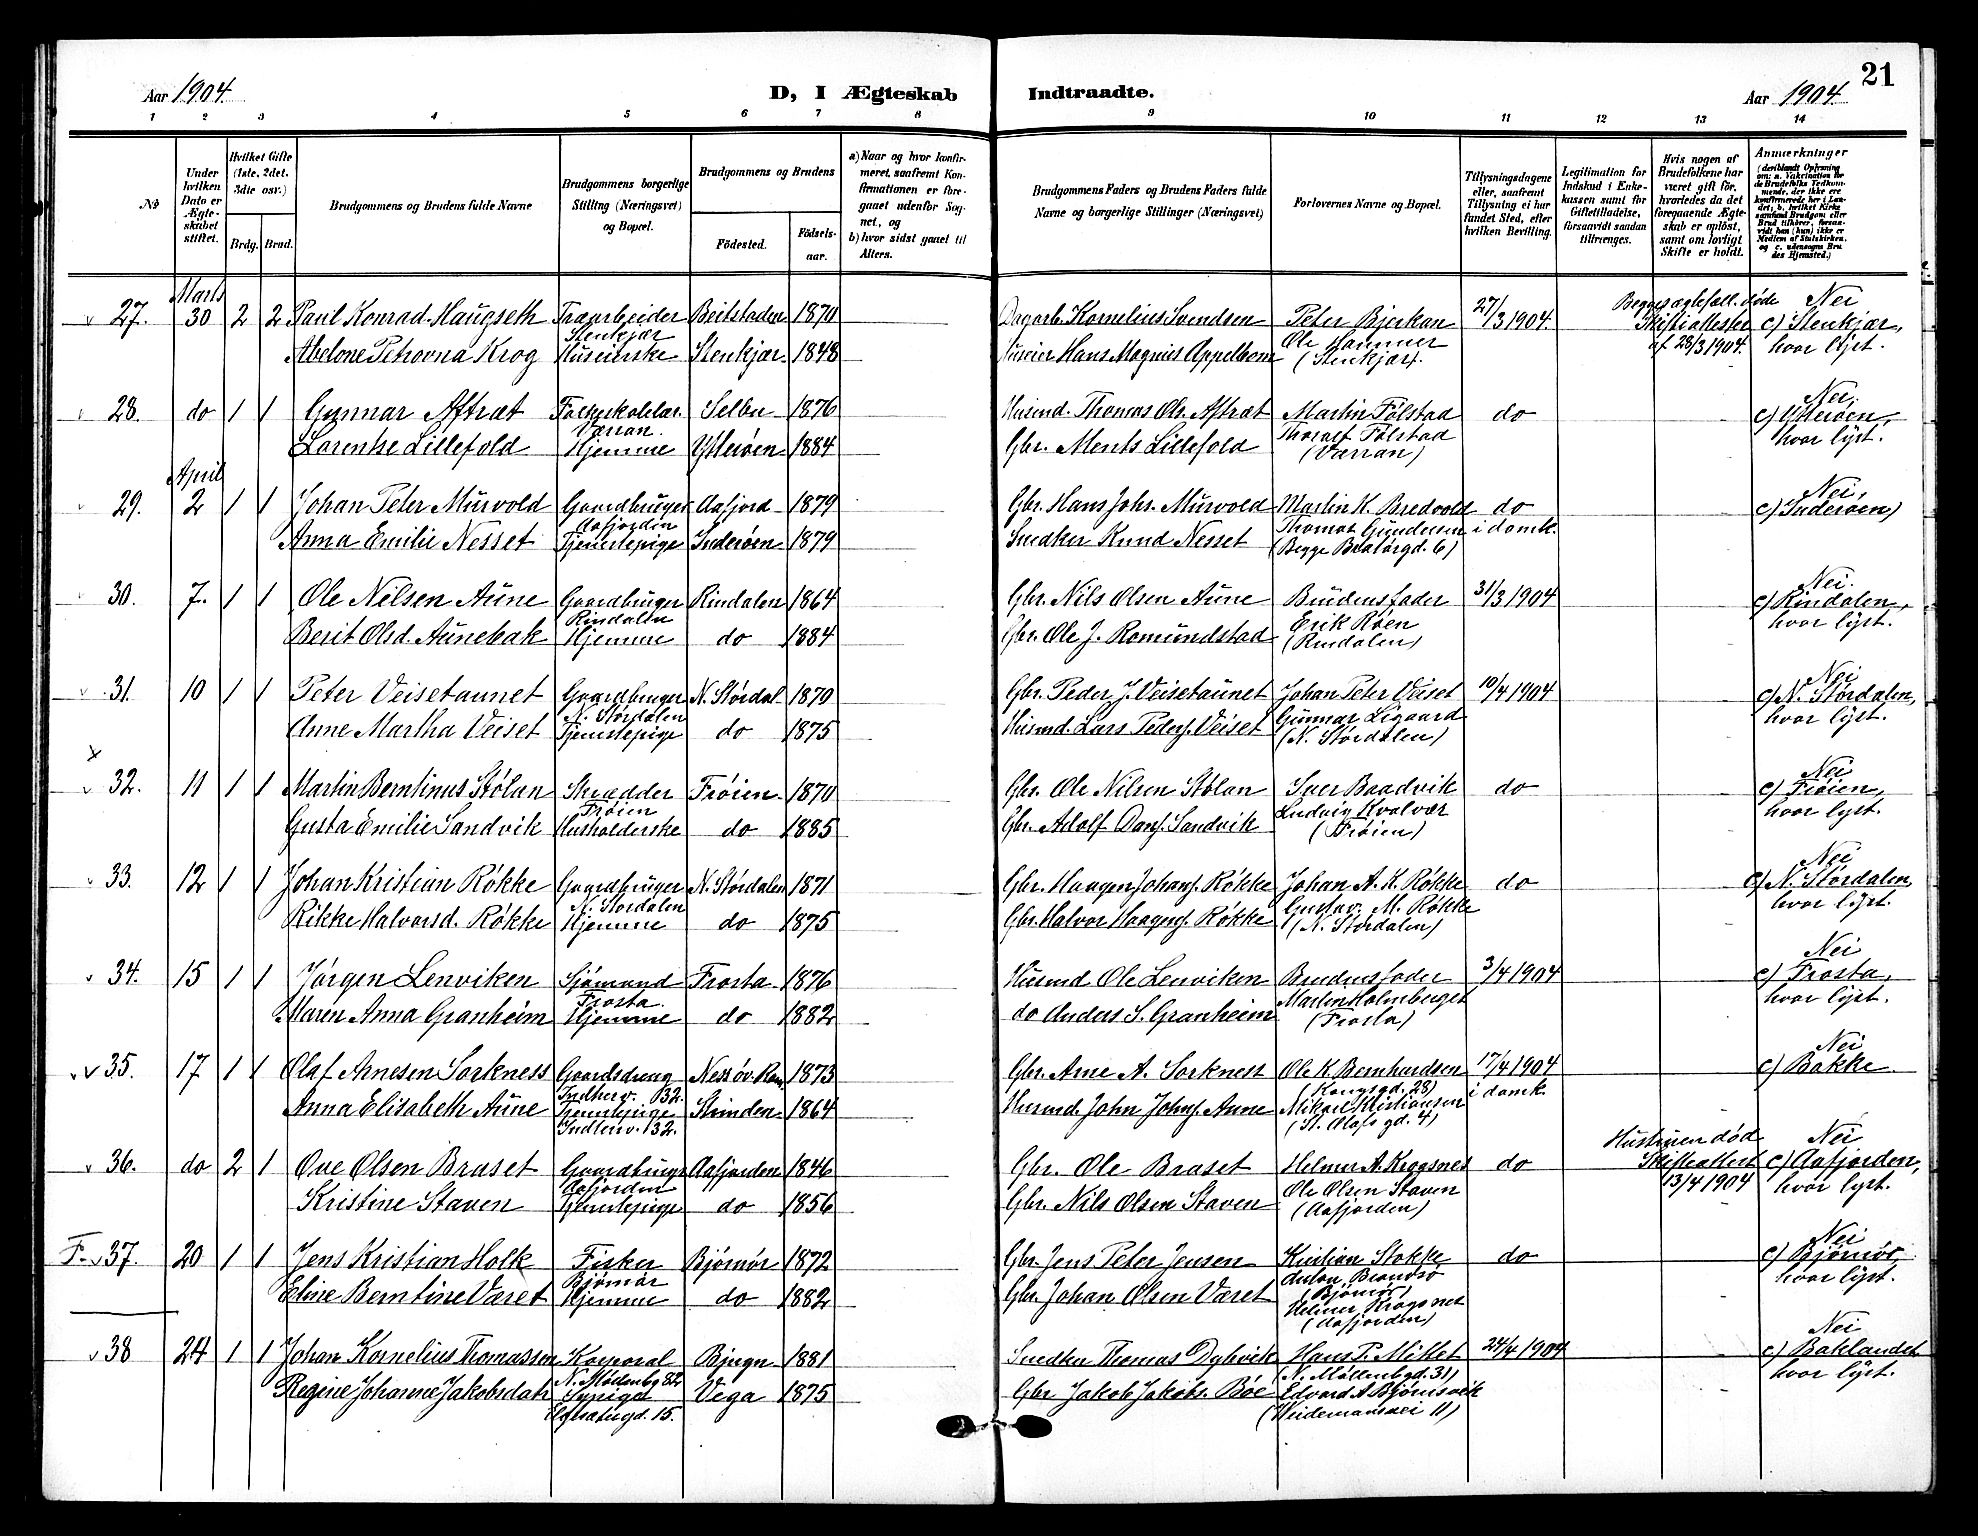 Aar 1904.
D, I Ægteskab Indtraadte.
Aar 1904.
21
1 2 3 4 5 6 7 8 9 10 11 12 13 14
No
Under hvilken Dato er Ægteskabet stiftet.
Hvilket Gifte (1ste, 2det, 3die osv.)
Brdg. Brud.
Brudgommens og Brudens fulde Navne
Brudgommens borgerlige Stilling (Næringsvei) og Bopæl.
Brudgommens og Brudens
Födested.
Födselsaar.
a) Naar og hvor konfirmeret, saafremt Konfirmationen er foregaaet udenfor Sognet, og
b) hvor sidst gaaet til Alters.
Brudgommens Faders og Brudens Faders fulde Navne og borgerlige Stillinger (Næringsvei)
Forlovernes Navne og Bopæl.
Tillysningsdagene eller, saafremt Tillysning ei har fundet Sted, efter hvilken Bevilling.
Legitimation for Indskud i Enkekassen samt for Giftetilladelse, forsaavidt saadan tiltrænges.
Hvis nogen af Brudefolkene har været gift för, hvorledes da det foregaaende Ægteskab er oplöst, samt om lovligt Skifte er holdt.
Anmærkninger
27. Marts 30 2 2 Paul Konrad Haugseth Træarbeider Stenkjær Beitstaden 1870 Dagarb. Kornelius Svendsen Peter Bjerkan 27/3 1904. Begges ægtefæll. døde Nei
Abelone Petrovna Krog Huseierske Stenkjær. 1848 Huseier Hans Magnus Appelbom Ole Hammer (Stenkjær). Skifteattester af 28/3 1904. c) Stenkjær, hvor lyst.
28. do 1 1 Gunnar Aftræt Folkeskolelær. Værran. Selbu 1876 Husmd. Thomas Ols. Aftræt Martin Følstad do Nei.
Lorentse Lillefold Hjemme Ytterøen 1884 Gbr. Ments Lillefold Thoralf Følstad (Værran) c) Ytterøen, hvor lyst.
29. April 2 1 1 Johan Peter Murvold Gaardbruger Aafjorden Aafjord 1879 Gbr. Hans Johs. Murvold Martin K. Bredvold do Nei
Anna Emilie Nesset Tjenestepige Inderøen 1879 Snedker Knud Nesset Thomas Gundersen (Begge Bratørgd. 6) i domk. c) Inderøen)
30. 7. 1 1 Ole Nilsen Aune Gaardbruger Rindalen Rindalen 1864 Gbr. Nils Olsen Aune Brudensfader 31/3 1904 Nei.
Berit Olsd. Aunebak Hjemme do 1884 Gbr. Ole J. Romundstad Erik Røen (Rindalen) c) Rindalen, hvor lyst.
31. 10 1 1 Peter Veisetaunet Gaardbruger N. Størdalen N. Størdal 1870 Gbr. Peder J. Veisetaunet Johan Peter Veiset 10/4 1904 Nei
Anne Martha Veiset Tjenestepige do 1875 Husmd. Lars Peders. Veiset Gunnar Ligaard (N. Størdalen) c) N. Størdalen, hvor lyst.
32. 11 1 1 Martin Berntinus Stølan Skrædder Frøien Frøien 1870 Gbr. Ole Nilsen Stølan Iver Baadvik do Nei
Gusta Emilie Sandvik Husholderske do 1885 Gbr. Adolf Dans. Sandvik Ludvig Kvalvær (Frøien) c) Frøien, hvor lyst.
33. 12 1 1 Johan Kristian Røkke Gaardbruger N. Størdalen N. Størdalen 1871 Gbr. Haagen Johans. Røkke Johan A. K. Røkke do Nei
Rikke Halvorsd. Røkke Hjemme do 1875 Gbr. Halvor Haagens. Røkke Gustav M. Røkke (N. Størdalen) c) N. Størdalen, hvor lyst.
34. 15 1 1 Jørgen Lenviken Sjømand Frosta. Frosta 1876 Husmd Ole Lenviken Brudensfader 3/4 1904 Nei
Maren Anna Granheim Hjemme do 1882 do Anders S. Granheim Martin Holmberget (Frosta) c) Frosta, hvor lyst.
35. 17 1 1 Olaf Arnesen Sorkness Gaardsdreng Indherv. 132. Ness øv. Rom. 1873 Gbr. Arne A. Sorkness Ole K. Bernhardsen (Kongsgd. 28) 17/4 1904 Nei
Anna Elisabeth Aune Tjenestepige Indherv. 132. Strinden 1864 Husmd. John Johns. Aune Mikael Kristiansen (St. Olafs gd. 4) i domk. c) Bakke
36. do 2 1 Ove Olsen Braset Gaardbruger Aafjorden Aafjorden 1846 Gbr. Ole Braset Helmer A. Krogsnes do Hustruen død Nei
Kristine Staven Tjenestepige do 1856 Gbr. Nils Olsen Staven Ole Olsen Staven (Aafjorden) Skifteattest 13/4 1904 c) Aafjorden, hvor lyst.
F. 37. 20 1 1 Jens Kristian Holk Fisker Bjørnør Bjørnør 1872 Gbr. Jens Peter Jensen Kristian Stokke do Nei
Eline Berntine Været Hjemme do 1882 Gbr. Johan Olsen Været Anton Brandsø (Bjørnør) Helmer Krogsnes (Aafjorden) c) Bjørnør, hvor lyst.
38 24 1 1 Johan Kornelius Thomassen Korporal N. Møllenbg 82 Bjugn 1881 Snedker Thomas Dybvik Hans P. Miklet (N. Møllenbgd. 31) 24/4 1904 Nei
Regine Johanne Jakobsdatr Sypige 15. Vega 1875 Gbr Jakob Jakobs. Bøe Edvard A Bjørnsvik (Weidemansvei 11) c) Baklandet hvor lyst.